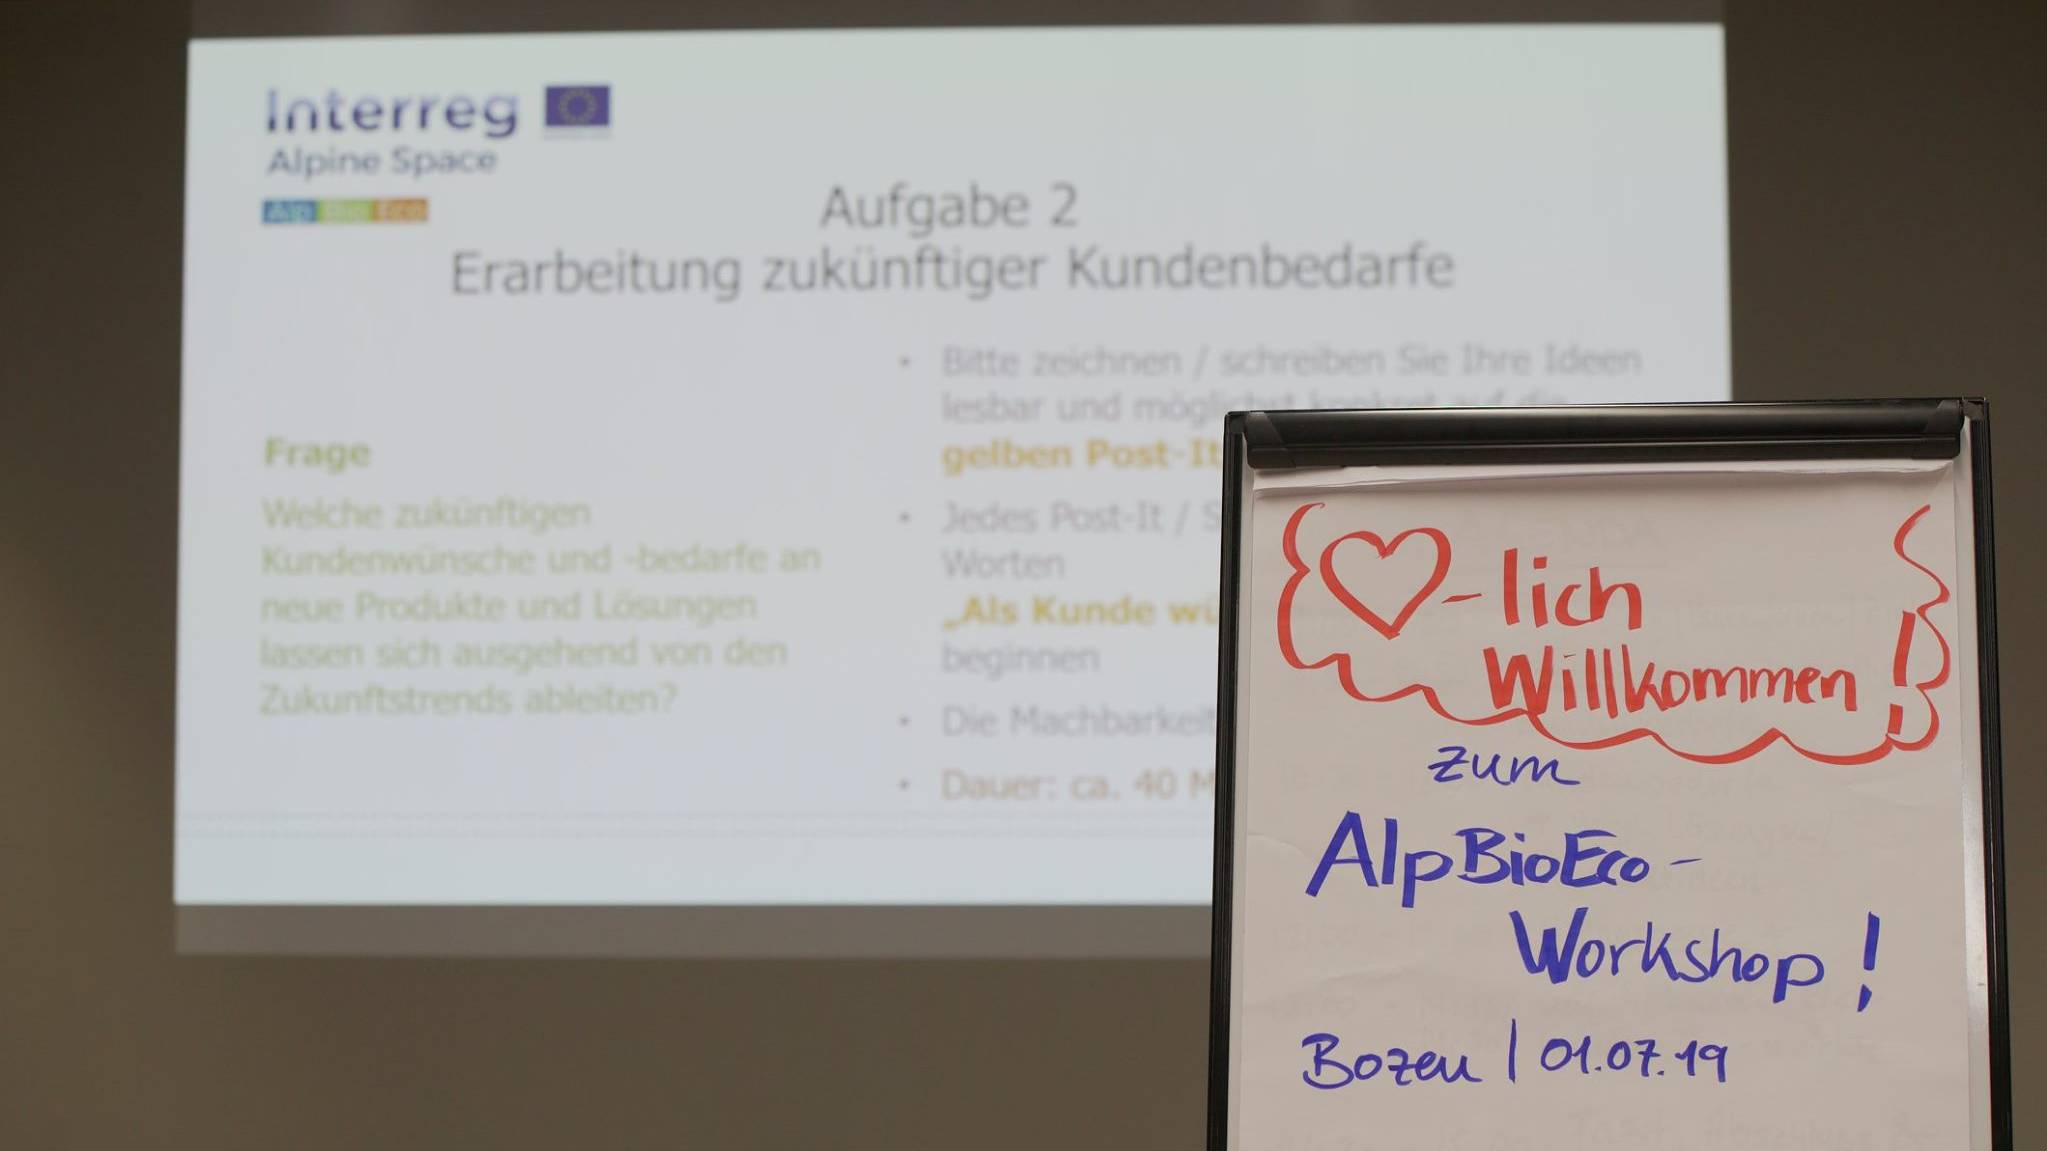 Interreg
Alpine Space
Alp Bio Eco
Aufgabe 2
Erarbeitung zukünftiger Kundenbedarfe
Frage
Welche zukünftigen
Kundenwünsche und -bedarfe an
neue Produkte und Lösungen
lassen sich ausgehend von den
Zukunftstrends ableiten?
• Bitte zeichnen / schreiben Sie Ihre Ideen
lesbar und möglichst konkret auf die
gelben Post-It
• Jedes Post-It / S
Worten
„Als Kunde wü
beginnen
• Die Machbarkeit
• Dauer: ca. 40 M
♡-lich
Willkommen!
zum
AlpBioEco-
Workshop!
Bozen | 01.07.19